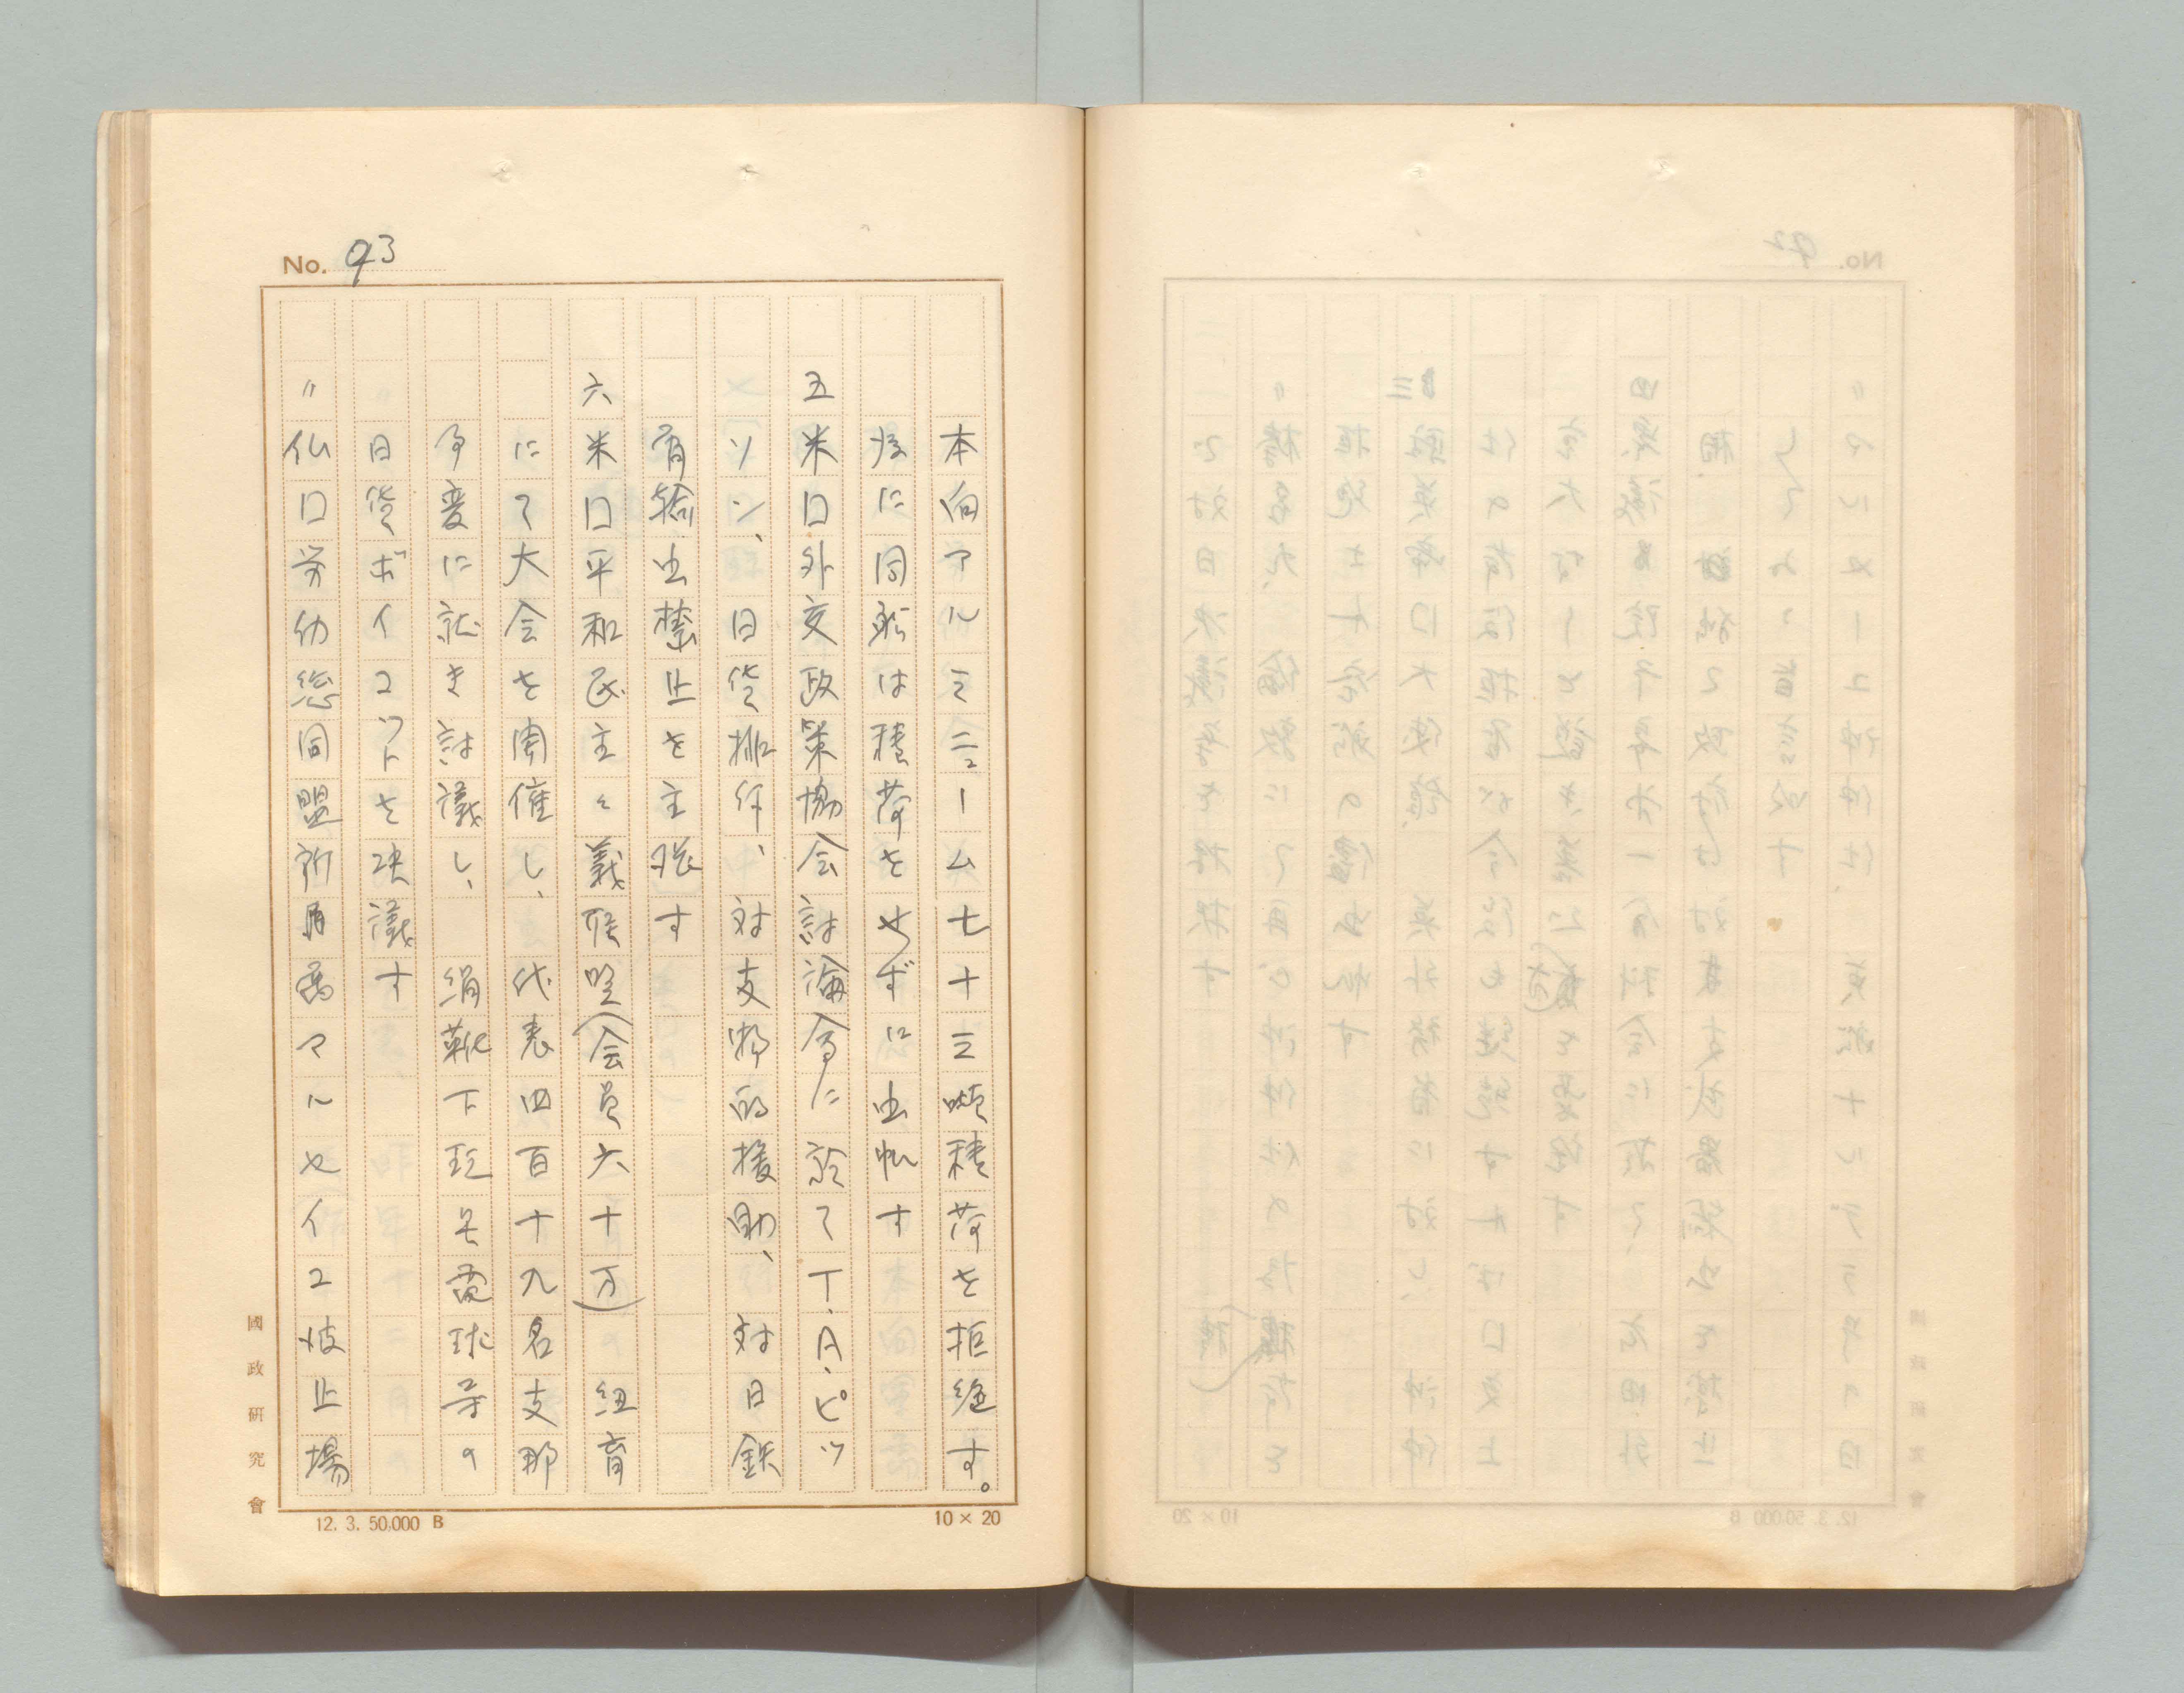 No. 93
本向アルミニーム七十三噸積荷を拒絶す。
後に同船は積荷をせずに出帆す
五米口外交政策協会討論会に於てT.A.ピッ
ソン、日貨排斥、対支物的援助、対日鉄
屑輸出禁止を主張す
六米口平和民主々義聯盟(会員六十万)紐育
にて大会を開催し、代表四百十九名支那
事変に就き討議し、絹靴下玩具電球等の
日貨ボイコットを決議す
〃仏口労働総同盟所属マルセイユ波止場
國政研究會
12. 3. 50,000 B
10 × 20